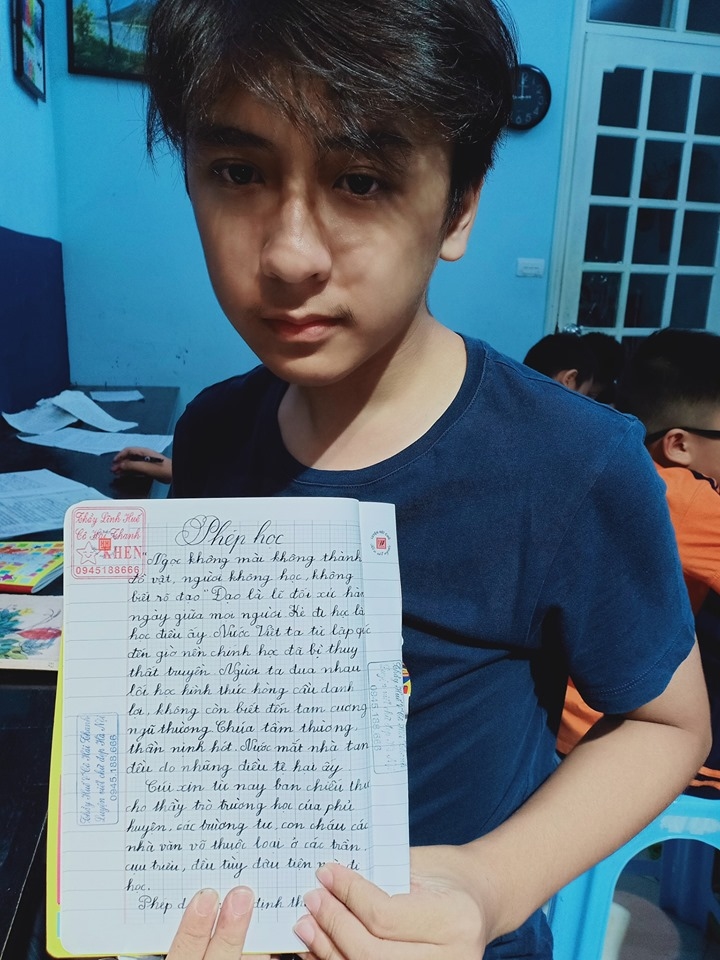 Thầy Lĩnh Huế
Cô Hải Thanh
KHEN
0945188666
Phép học
"Ngọc không mài không thành
đồ vật, người không học, không
biết rõ đạo" Đạo là lẽ đối xử hàng
ngày giữa mọi người. Kẻ đi học là
học điều ấy. Nước Việt ta từ lập quốc
đến giờ nền chính học đã bị thuy
thất truyền. Người ta đua nhau
lối học hình thức hòng cầu danh
lợi, không còn biết đến tam cương,
ngũ thường. Chúa tầm thường,
thần nịnh hót. Nước mất nhà tan
đều do những điều tệ hại ấy
Cúi xin từ nay ban chiếu thư
cho thầy trò trường học của phủ
huyện, các trường tư, con cháu các
nhà văn võ thuộc lại ở các trấn
cựu triều, đều tùy đâu tiện mà đi
học.
Phép
định
Thầy Huế & Cô Hải Thanh
Luyện viết chữ đẹp Hà Nội
0945.188.666